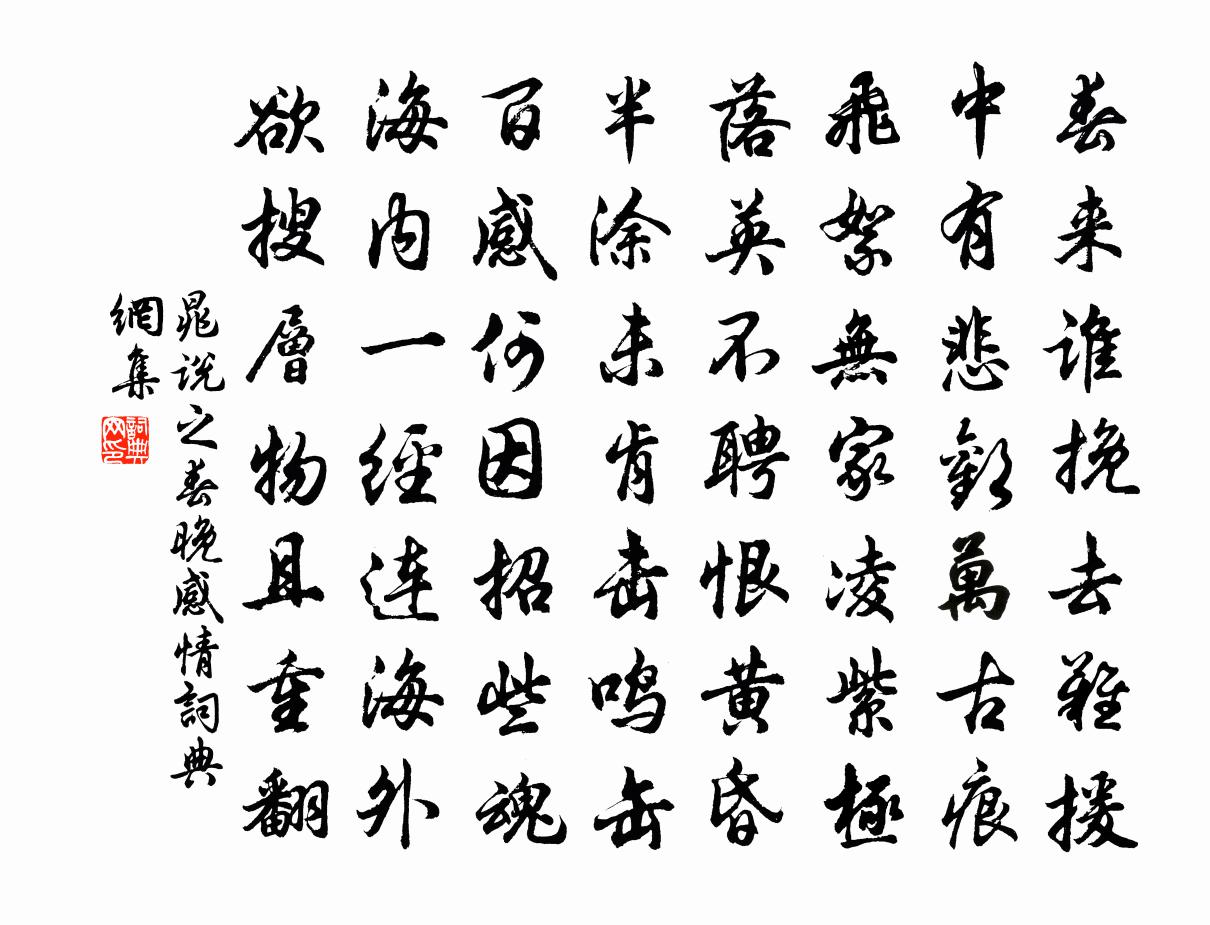 春来谁挽去難援
中有悲歡萬古痕
飛絮無家凌紫極
落英不聘恨黄昏
半涂未肯击鸣缶
百感何因招些魂
海内一經连海外
欲搜層物且重翻
晁说之春晚感情詞典
網集
詞典
网印